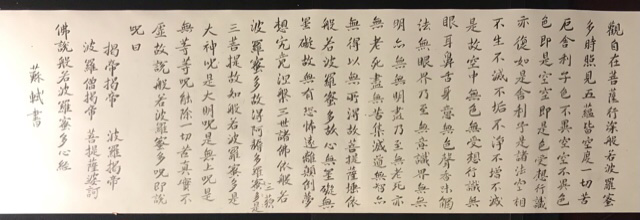 觀自在菩薩行深般若波羅蜜
多時照見五蘊皆空度一切苦
厄舍利子色不異空空不異色
色即是空空即是色受想行識
亦復如是舍利子是諸法空相
不生不滅不垢不淨不增不減
是故空中無色無受想行識無
眼耳鼻舌身意無色聲香味觸
法無眼界乃至無意識界無無
明亦無無明盡乃至無老死亦
無老死盡無苦集滅道無智亦
無得以無所得故菩提薩埵依
般若波羅蜜多故心無罣礙無
罣礙故無有恐怖遠離顛倒夢
想究竟涅槃三世諸佛依般若
波羅蜜多故得阿耨多羅三藐
三菩提故知般若波羅蜜多是
大神咒是大明咒是無上咒是
無等等咒能除一切苦真實不
虛故說般若波羅蜜多咒即說
咒曰
揭帝揭帝 波羅揭帝
波羅僧揭帝 菩提薩婆訶
佛說般若波羅蜜多心經
蘇軾書